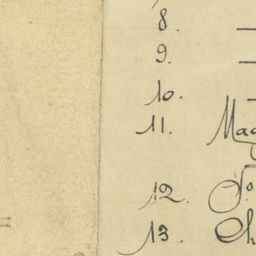 8. —
9. —
10.
11. Mag
12.
13. Ch